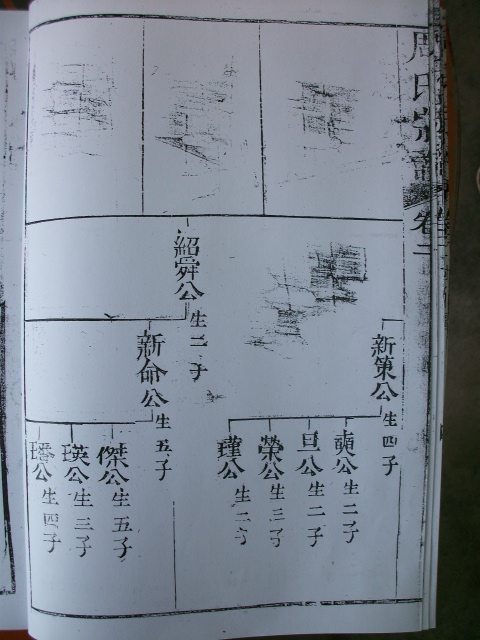 周氏宗譜 卷二
新策公生四子
奭公生二子
旦公生二子
榮公生三子
瑾公生二子
紹舜公生二子
新命公生五子
傑公生五子
瑛公生三子
公生四子